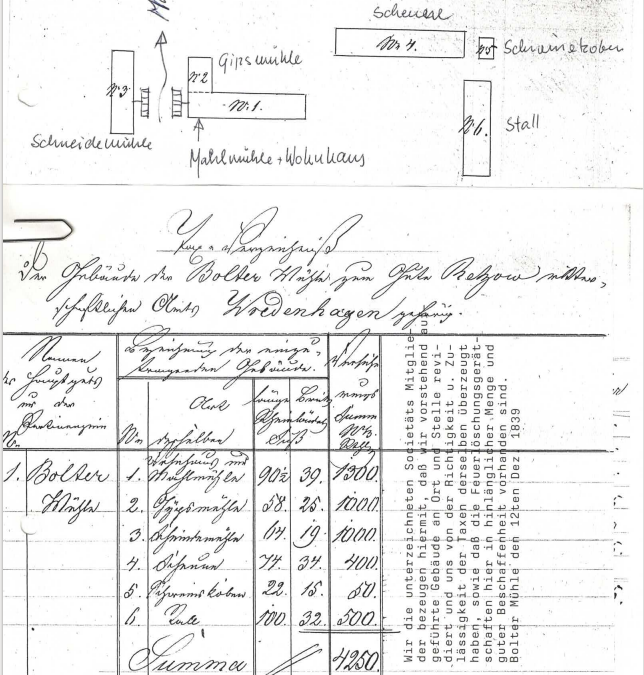 Scheuere
No 4.
No 5
Schweinekoben
No 2
Gipsmühle
No 3
No. 1.
No 6.
Stall
Schneidemühle
Mahlmühle + Wohnhaus
Tax-Verzeichniß
Der Gebäude der Bolter Mühle zum Gute Retzow ritter-
schaftlichen Amts Wredenhagen gehörig.
Namen
des Hauptguts
und der
Pertinenzien
No
Bezeichnung der einzu-
tragenden Gebäude.
No
Art
derselben
Länge
Breite
Rheinländ.
Fuß
Versiche-
rungs
Summe
1. Bolter
Mühle
1. Wohnhaus und
Mahlmühle 90½ 39. 1300.
2. Gypsmühle 58. 25. 1000.
3. Schneidemühle 64. 19. 1000.
4. Scheune 74. 34. 400.
5. Schweinskoben 22. 15. 50.
6. 100. 32. 500.
Summa 4250.
Wir die unterzeichneten Societäts Mitglie-
der bezeugen hiermit, daß wir vorstehend au
geführte Gebäude an Ort und Stelle revi-
diert und uns von der Richtigkeit u. Zu-
lässigkeit der Taxen derselben überzeugt
haben, sowie daß die Feuerlöschungsgerät-
schaften hier in hinlänglicher Menge und
guter Beschaffenheit vorhanden sind.
Bolter Mühle den 12ten Dez. 1839